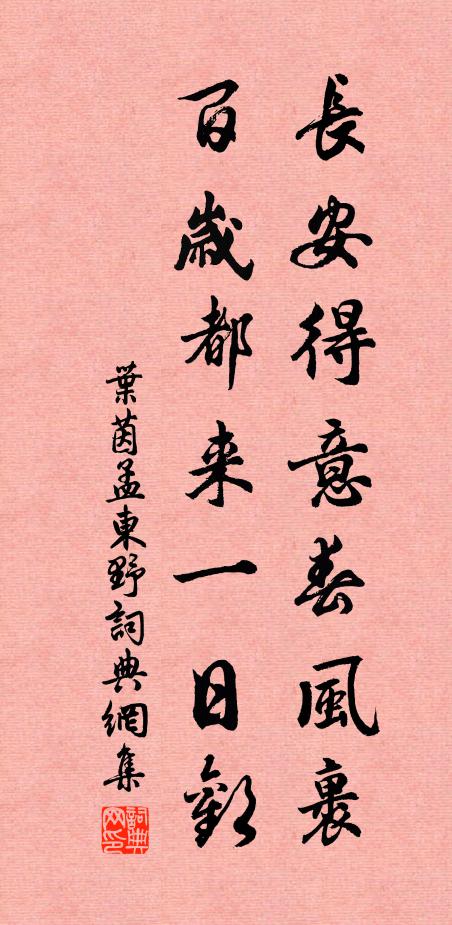 長安得意春風裏
百歲都来一日歡
葉茵孟東野詞典網集
詞典网印